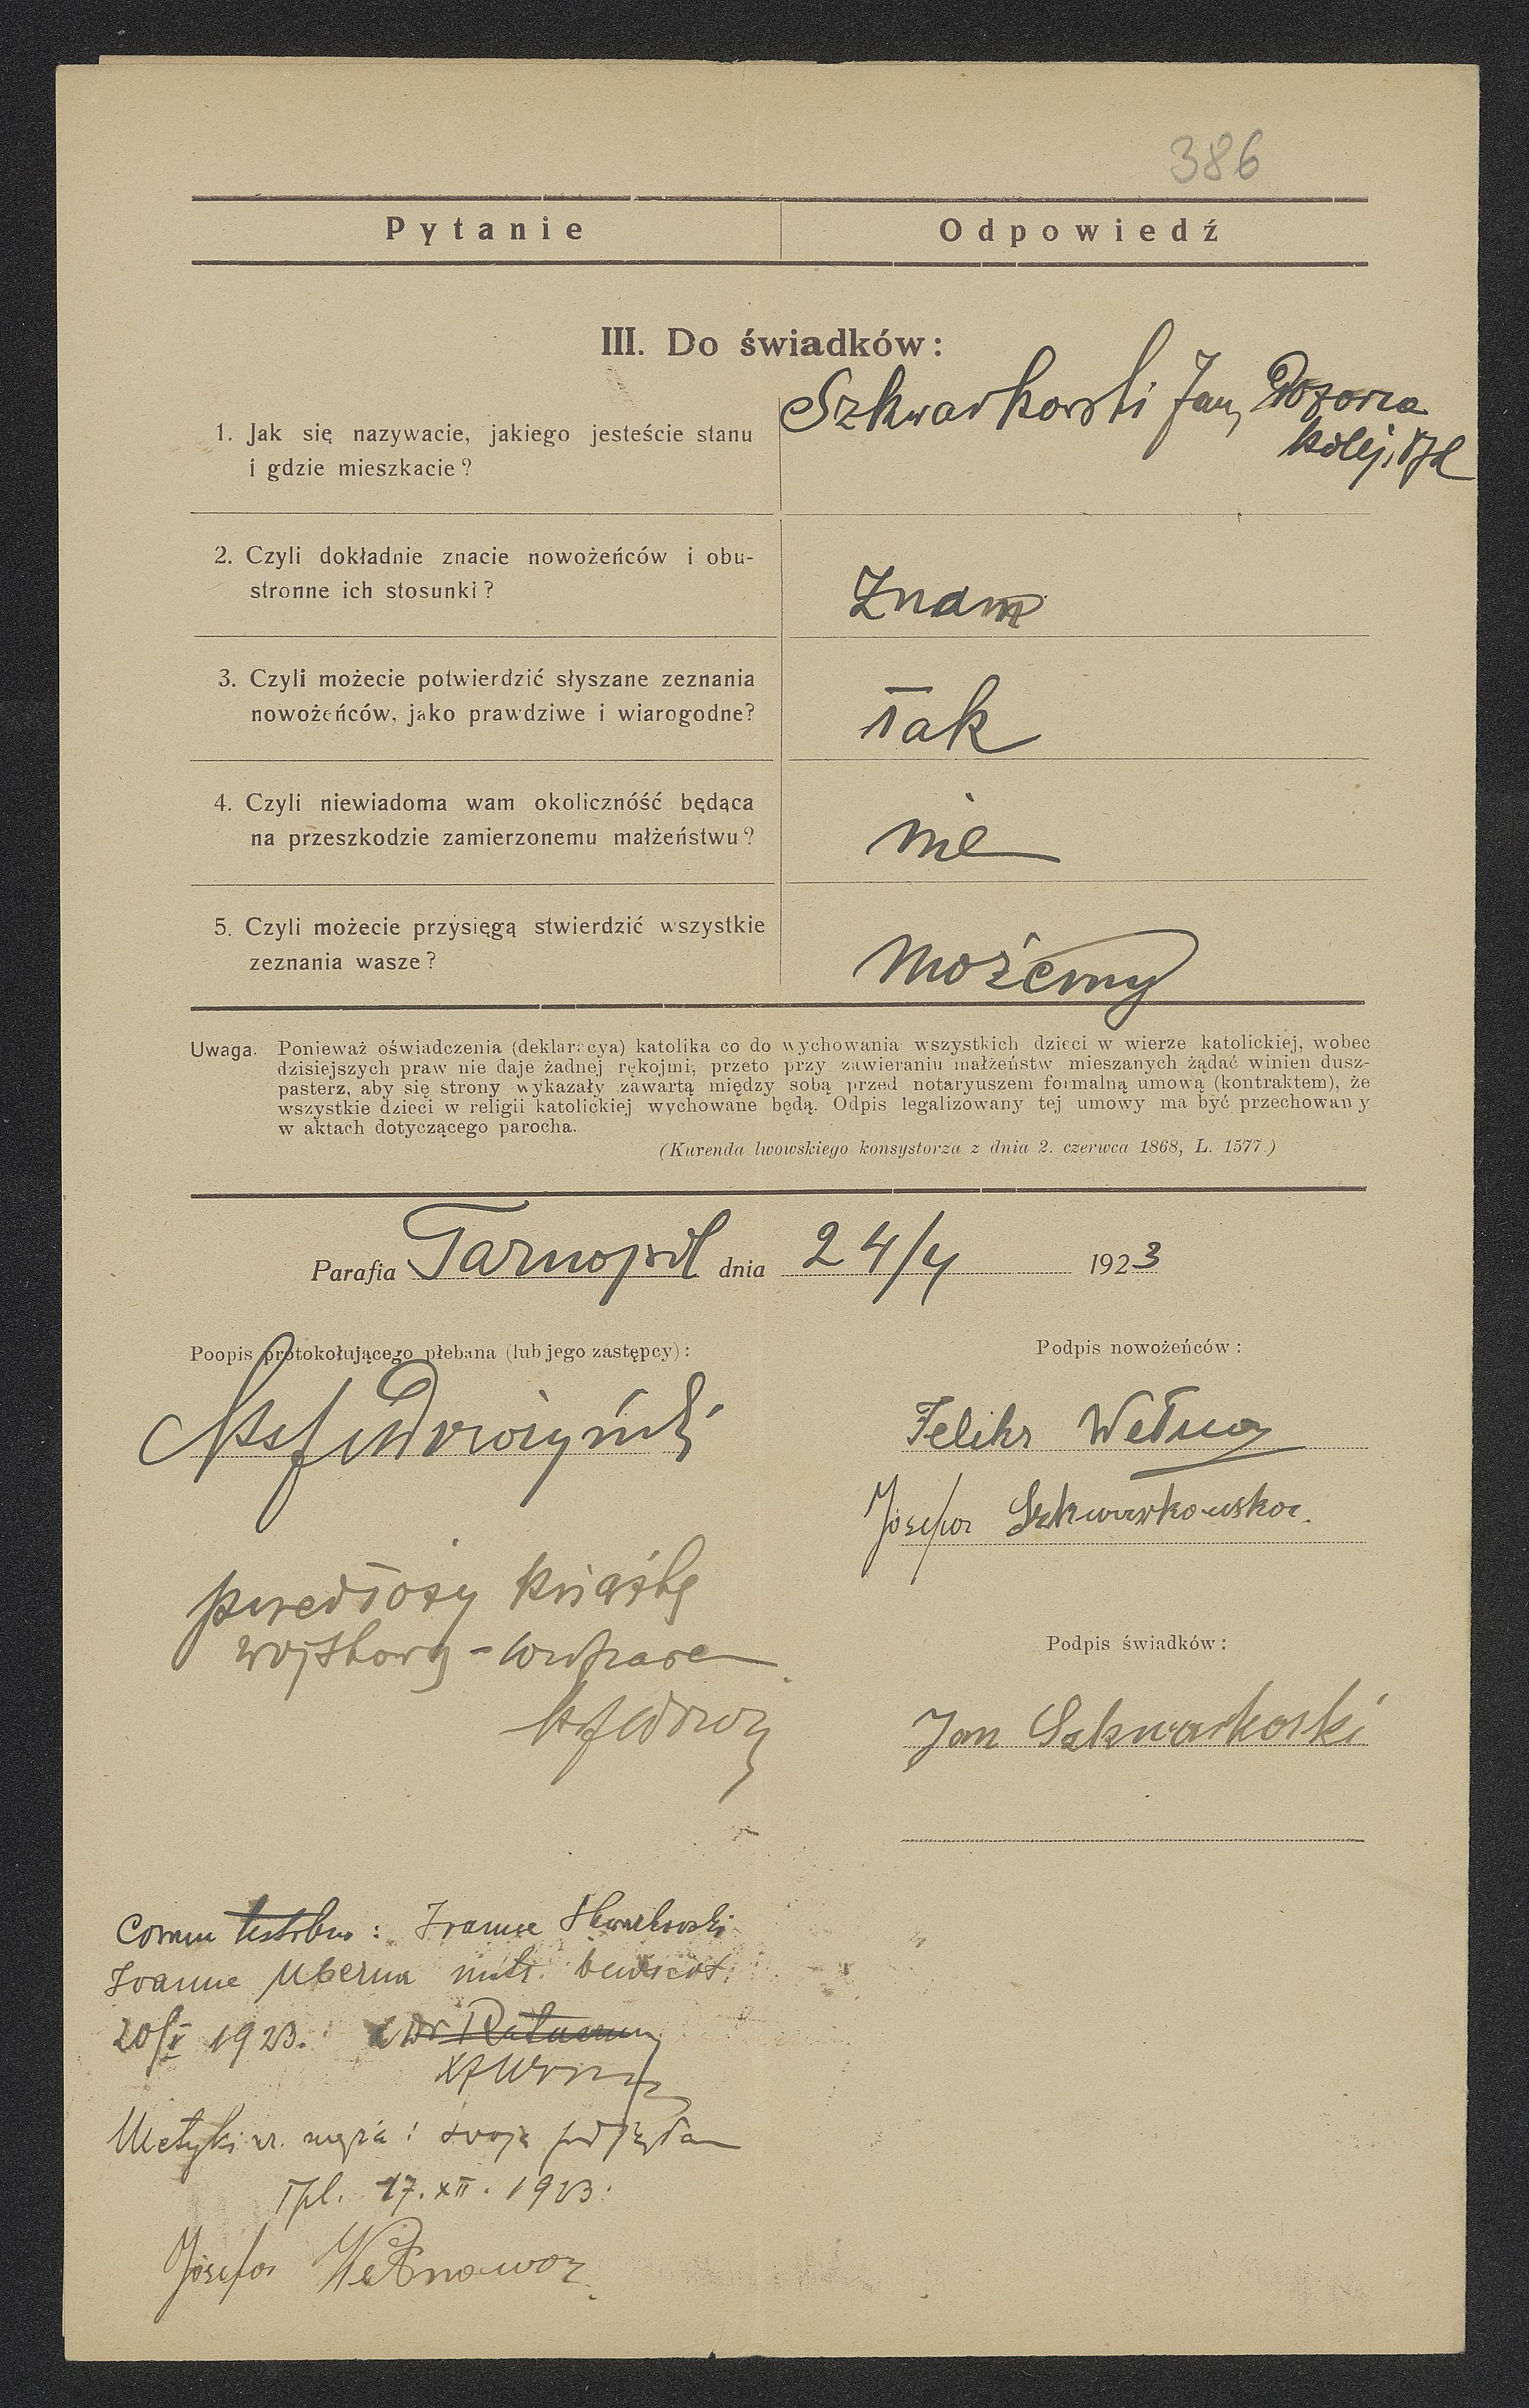 386
Pytanie
Odpowiedź
III. Do świadków:
1. Jak się nazywacie, jakiego jesteście stanu
i gdzie mieszkacie?
Szkwarkowski Jan, Dozorca
kolej.
2. Czyli dokładnie znacie nowożeńców i obu-
stronne ich stosunki?
Znam
3. Czyli możecie potwierdzić słyszane zeznania
nowożeńców, jako prawdziwe i wiarogodne?
Tak
4. Czyli niewiadoma wam okolicznóść będąca
na przeszkodzie zamierzonemu małżeństwu?
nie
5. Czyli możecie przysięgą stwierdzić wszystkie
zeznania wasze?
możemy
Uwaga. Ponieważ oświadczenia (deklaracya) katolika co do wychowania wszystkich dzieci w wierze katolickiej, wobec
dzisiejszych praw nie daje żadnej rękojmi; przeto przy zawieraniu małżeństw mieszanych żądać winien dusz-
pasterz, aby się strony wykazały zawartą między sobą przed notaryuszem formalną umową (kontraktem), że
wszystkie dzieci w religii katolickiej wychowane będą. Odpis legalizowany tej umowy ma być przechowany
w aktach dotyczącego parocha.
(Kurenda lwowskiego konsystorza z dnia 2. czerwca 1868, L. 1577.)
Parafia Tarnopol dnia 24/4 1923
Poopis protokołującego plebana (lub jego zastępcy):
Podpis nowożeńców:
Feliks Wełna
Józefa Szkwarkowska.
przedłoży książkę
wojskową
Podpis świadków:
Jan Szkwarkoski
Coram testibus: Joanne Skwarkowski
Joanne
20/V 1923.
Metykę męża i swoją podjęłam
Tpl. 17. XII. 1923.
Józefa Wełnowa.